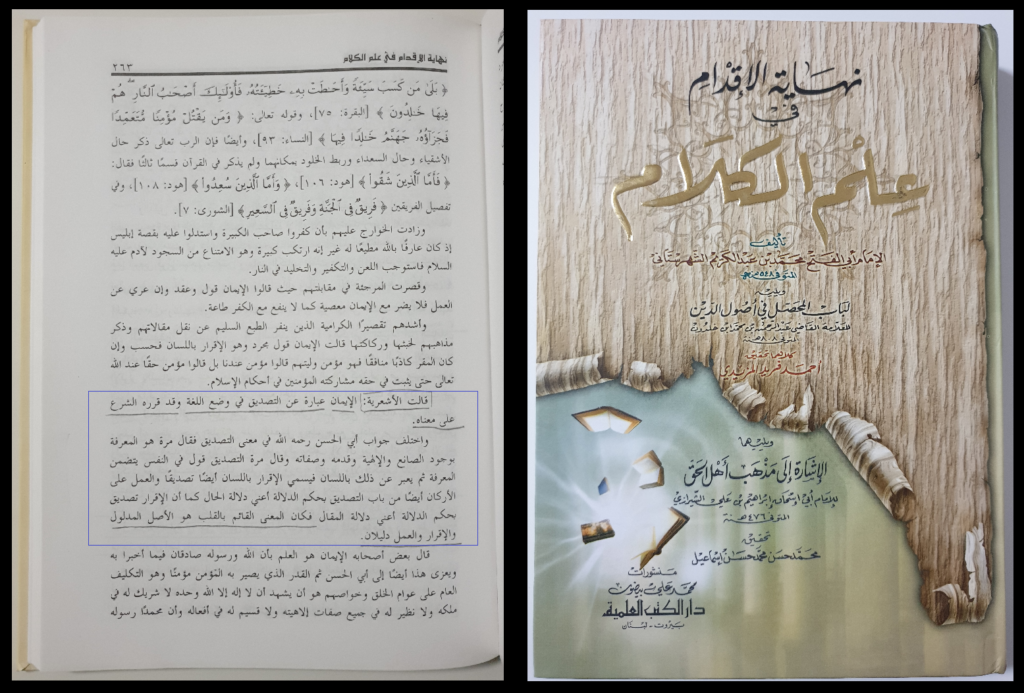 نهاية الإقدام في علم الكلام
٢٦٣
﴿ بَلَىٰ مَن كَسَبَ سَيِّئَةً وَأَحَـٰطَتْ بِهِۦ خَطِيٓـَٔتُهُۥ فَأُوْلَـٰٓئِكَ أَصْحَـٰبُ النَّارِ هُمْ
فِيهَا خَـٰلِدُونَ ﴾ [البقرة: ٧٥]، وقوله تعالى: ﴿ وَمَن يَقْتُلْ مُؤْمِنًا مُّتَعَمِّدًا
فَجَزَآؤُهُۥ جَهَنَّمُ خَـٰلِدًا فِيهَا ﴾ [النساء: ٩٣]، وأيضًا فإن الرب تعالى ذكر حال
الأشقياء وحال السعداء وربط الخلود بمكانهما ولم يذكر في القرآن قسمًا ثالثًا فقال:
﴿ فَأَمَّا الَّذِينَ شَقُواْ ﴾ [هود: ١٠٦]، ﴿ وَأَمَّا الَّذِينَ سُعِدُواْ ﴾ [هود: ١٠٨]، وفي
تفصيل الفريقين ﴿ فَرِيقٌ فِي الْجَنَّةِ وَفَرِيقٌ فِي السَّعِيرِ ﴾ [الشورى: ٧].
وزادت الخوارج عليهم بأن كفروا صاحب الكبيرة واستدلوا عليه بقصة إبليس
إذ كان عارفًا بالله مطيعًا له غير إنه ارتكب كبيرة وهو الامتناع من السجود لآدم عليه
السلام فاستوجب اللعن والتكفير والتخليد في النار.
وقصرت المرجئة في مقابلتهم حيث قالوا الإيمان قول وعقد وإن عري عن
العمل فلا يضر مع الإيمان معصية كما لا ينفع مع الكفر طاعة.
وأشدهم تقصيرًا الكرامية الذين ينفر الطبع السليم عن نقل مقالاتهم وذكر
مذهبهم لخبثها وركاكتها قالت الإيمان قول مجرد وهو الإقرار باللسان فحسب وإن
كان المقر كاذبًا منافقًا فهو مؤمن وليتهم قالوا مؤمن عندنا بل قالوا مؤمن حقًا عند الله
تعالى حتى يثبت في حقه مشاركته المؤمنين في أحكام الإسلام.
قالت الأشعرية: الإيمان عبارة عن التصديق في وضع اللغة وقد قرره الشرع
على معناه.
واختلف جواب أبي الحسن رحمه الله في معنى التصديق فقال مرة هو المعرفة
بوجود الصانع والإلهية وقدمه وصفاته وقال مرة التصديق قول في النفس يتضمن
المعرفة ثم يعبر عن ذلك باللسان فيسمي الإقرار باللسان أيضًا تصديقًا والعمل على
الأركان أيضًا من باب التصديق بحكم الدلالة أعني دلالة الحال كما أن الإقرار تصديق
بحكم الدلالة أعني دلالة المقال فكان المعنى القائم بالقلب هو الأصل المدلول
والإقرار والعمل دليلان.
قال بعض أصحابه الإيمان هو العلم بأن الله ورسوله صادقان فيما أخبرا به
ويعزى هذا أيضًا إلى أبي الحسن ثم القدر الذي يصير به المؤمن مؤمنًا وهو التكليف
العام على عوام الخلق وخواصهم هو أن يشهد أن لا إله إلا الله وحده لا شريك له في
ملكه ولا نظير له في جميع صفات إلاهيته ولا قسيم له في أفعاله وأن محمدًا رسوله
نهاية الإقدام
في
علم الكلام
تأليف
الإمام أبي الفتح محمد بن عبد الكريم الشهرستاني
المتوفى ٥٤٨ هـ
ويليه
لباب المحصل في أصول الدين
للعلامة القاضي عبد الرحمن بن محمد ابن خلدون
المتوفى ٨٠٨ هـ
كلاهما بتحقيق
أحمد فريد المزيدي
ويليهما
الإشارة إلى مذهب أهل الحق
للإمام أبي إسحاق إبراهيم بن علي الشيرازي
المتوفى ٤٧٦ هـ سنة
تحقيق
محمد حسن محمد حسن إسماعيل
منشورات
محمد علي بيضون
دار الكتب العلمية
بيروت - لبنان